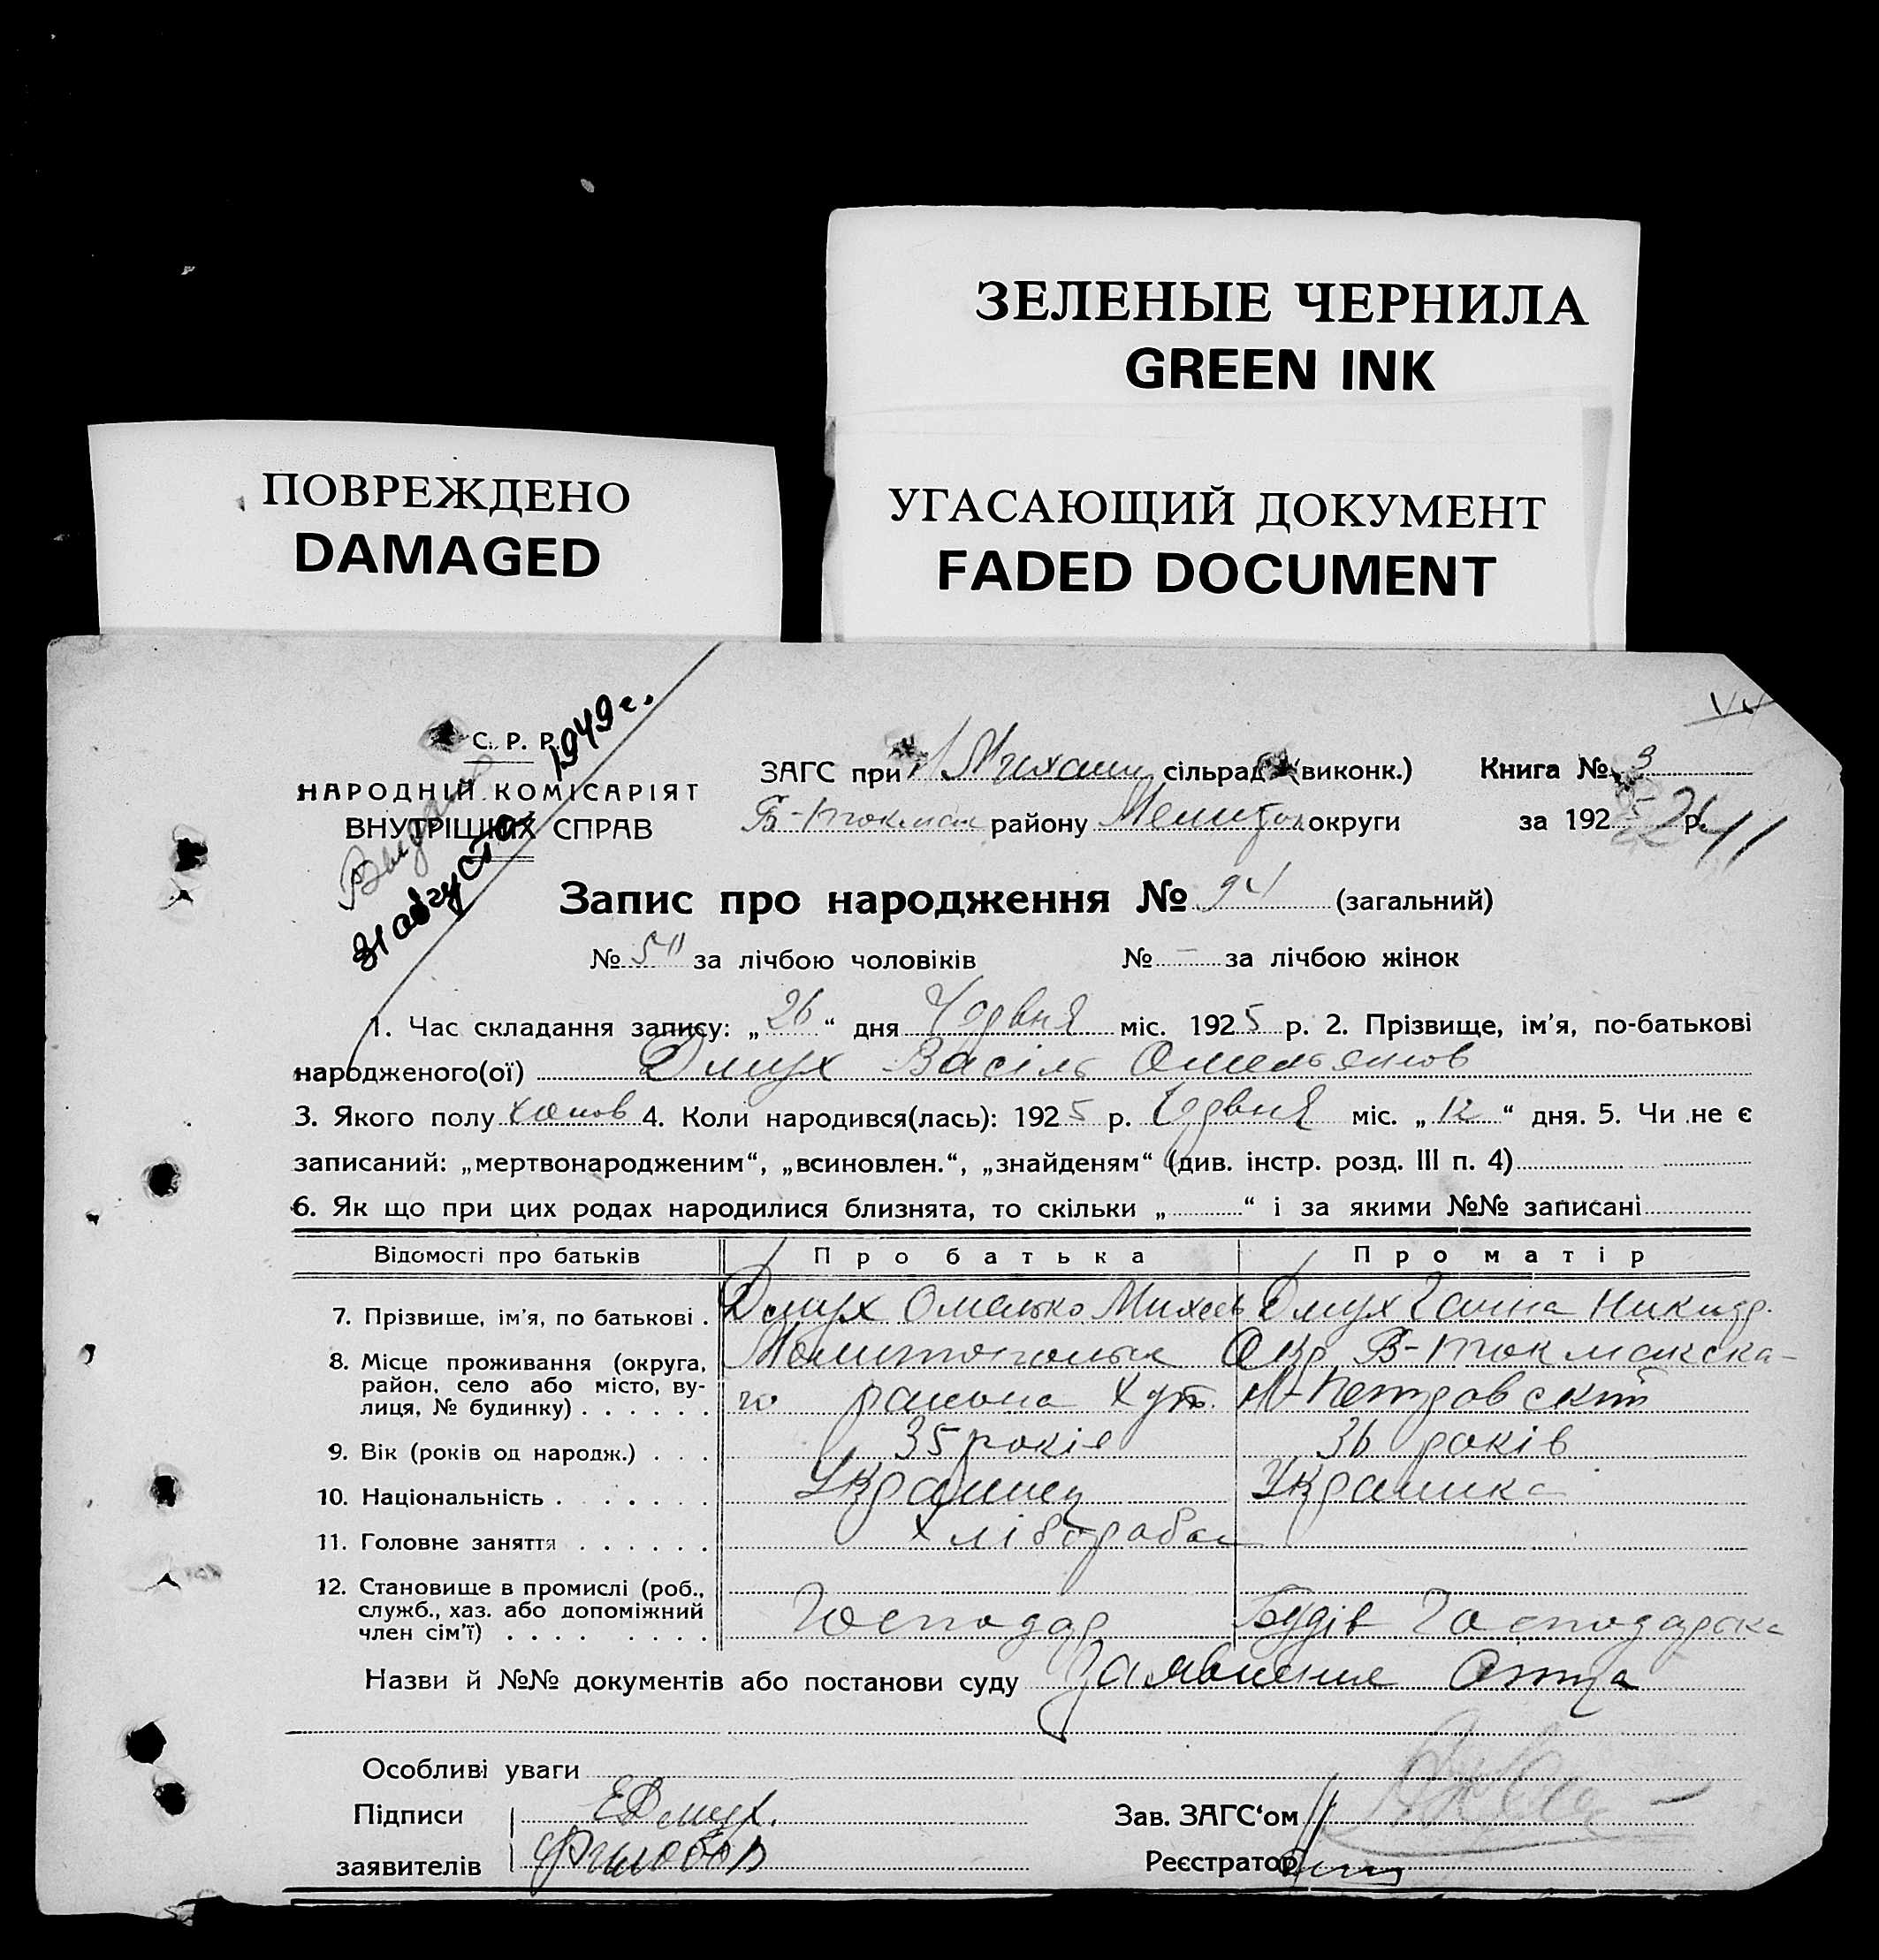 ЗЕЛЕНЫЕ ЧЕРНИЛА
GREEN INK
ПОВРЕЖДЕНО
DAMAGED
УГАСАЮЩИЙ ДОКУМЕНТ
FADED DOCUMENT
С. Р. Р.
НАРОДНІЙ КОМІСАРІЯТ
ВНУТРІШНИХ СПРАВ
31 августа 1949 г.
ЗАГС при сільрад (виконк.) Книга № 3
Б-Токмак району округи за 192 р.
Запис про народження № 94 (загальний)
№ за лічбою чоловіків № – за лічбою жінок
1. Час складання запису: „26“ дня Червня міс. 1925 р. 2. Прізвище, ім'я, по-батькові
народженого(ої) Дмух Василь Омельянов
3. Якого полу 4. Коли народився(лась): 1925 р. Червня міс. „12“ дня. 5. Чи не є
записаний: „мертвонародженим“, „всиновлен.“, „знайденям“ (див. інстр. розд. III п. 4)
6. Як що при цих родах народилися близнята, то скільки „ “ і за якими №№ записані
Відомості про батьків Про батька Про матір
7. Прізвише, ім'я, по батькові . Дмух Омелько Михеев Дмух Ганна Никидр.
8. Місце проживання (округа, район, село або місто, вулиця, № будинку) Окр. Б-Токмакска-
го района Хут. М-Петровскій
9. Вік (років од народж.) . . . 35 років 36 років
10. Національність . . . . . . Украинец Украинка
11. Головне заняття . . . . . . хлібороба
12. Становище в промислі (роб.,
служб., хаз. або допоміжний
член сім'ї) . . . . . . . . . Господар Господарска
Назви й №№ документів або постанови суду Заявление Отца
Особливі уваги
Підписи Е Дмух. Зав. ЗАГС'ом
заявителів Реєстратор